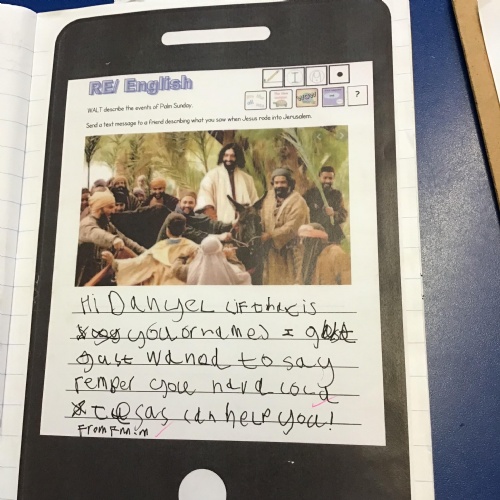 RE/ English
WALT describe the events of Palm Sunday.
Send a text message to a friend describing what you saw when Jesus rode into Jerusalem.
?
Hi Danyel if that is
you or names I
gust wanod to say
remper you
can help you!
From